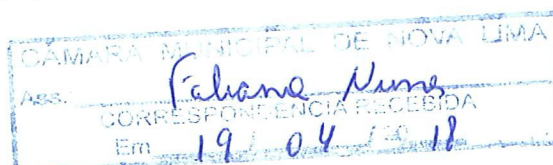 CÂMARA MUNICIPAL DE NOVA LIMA
Ass.: Fabiana Nunes
CORRESPONDÊNCIA RECEBIDA
Em 19 / 04 / 20 18